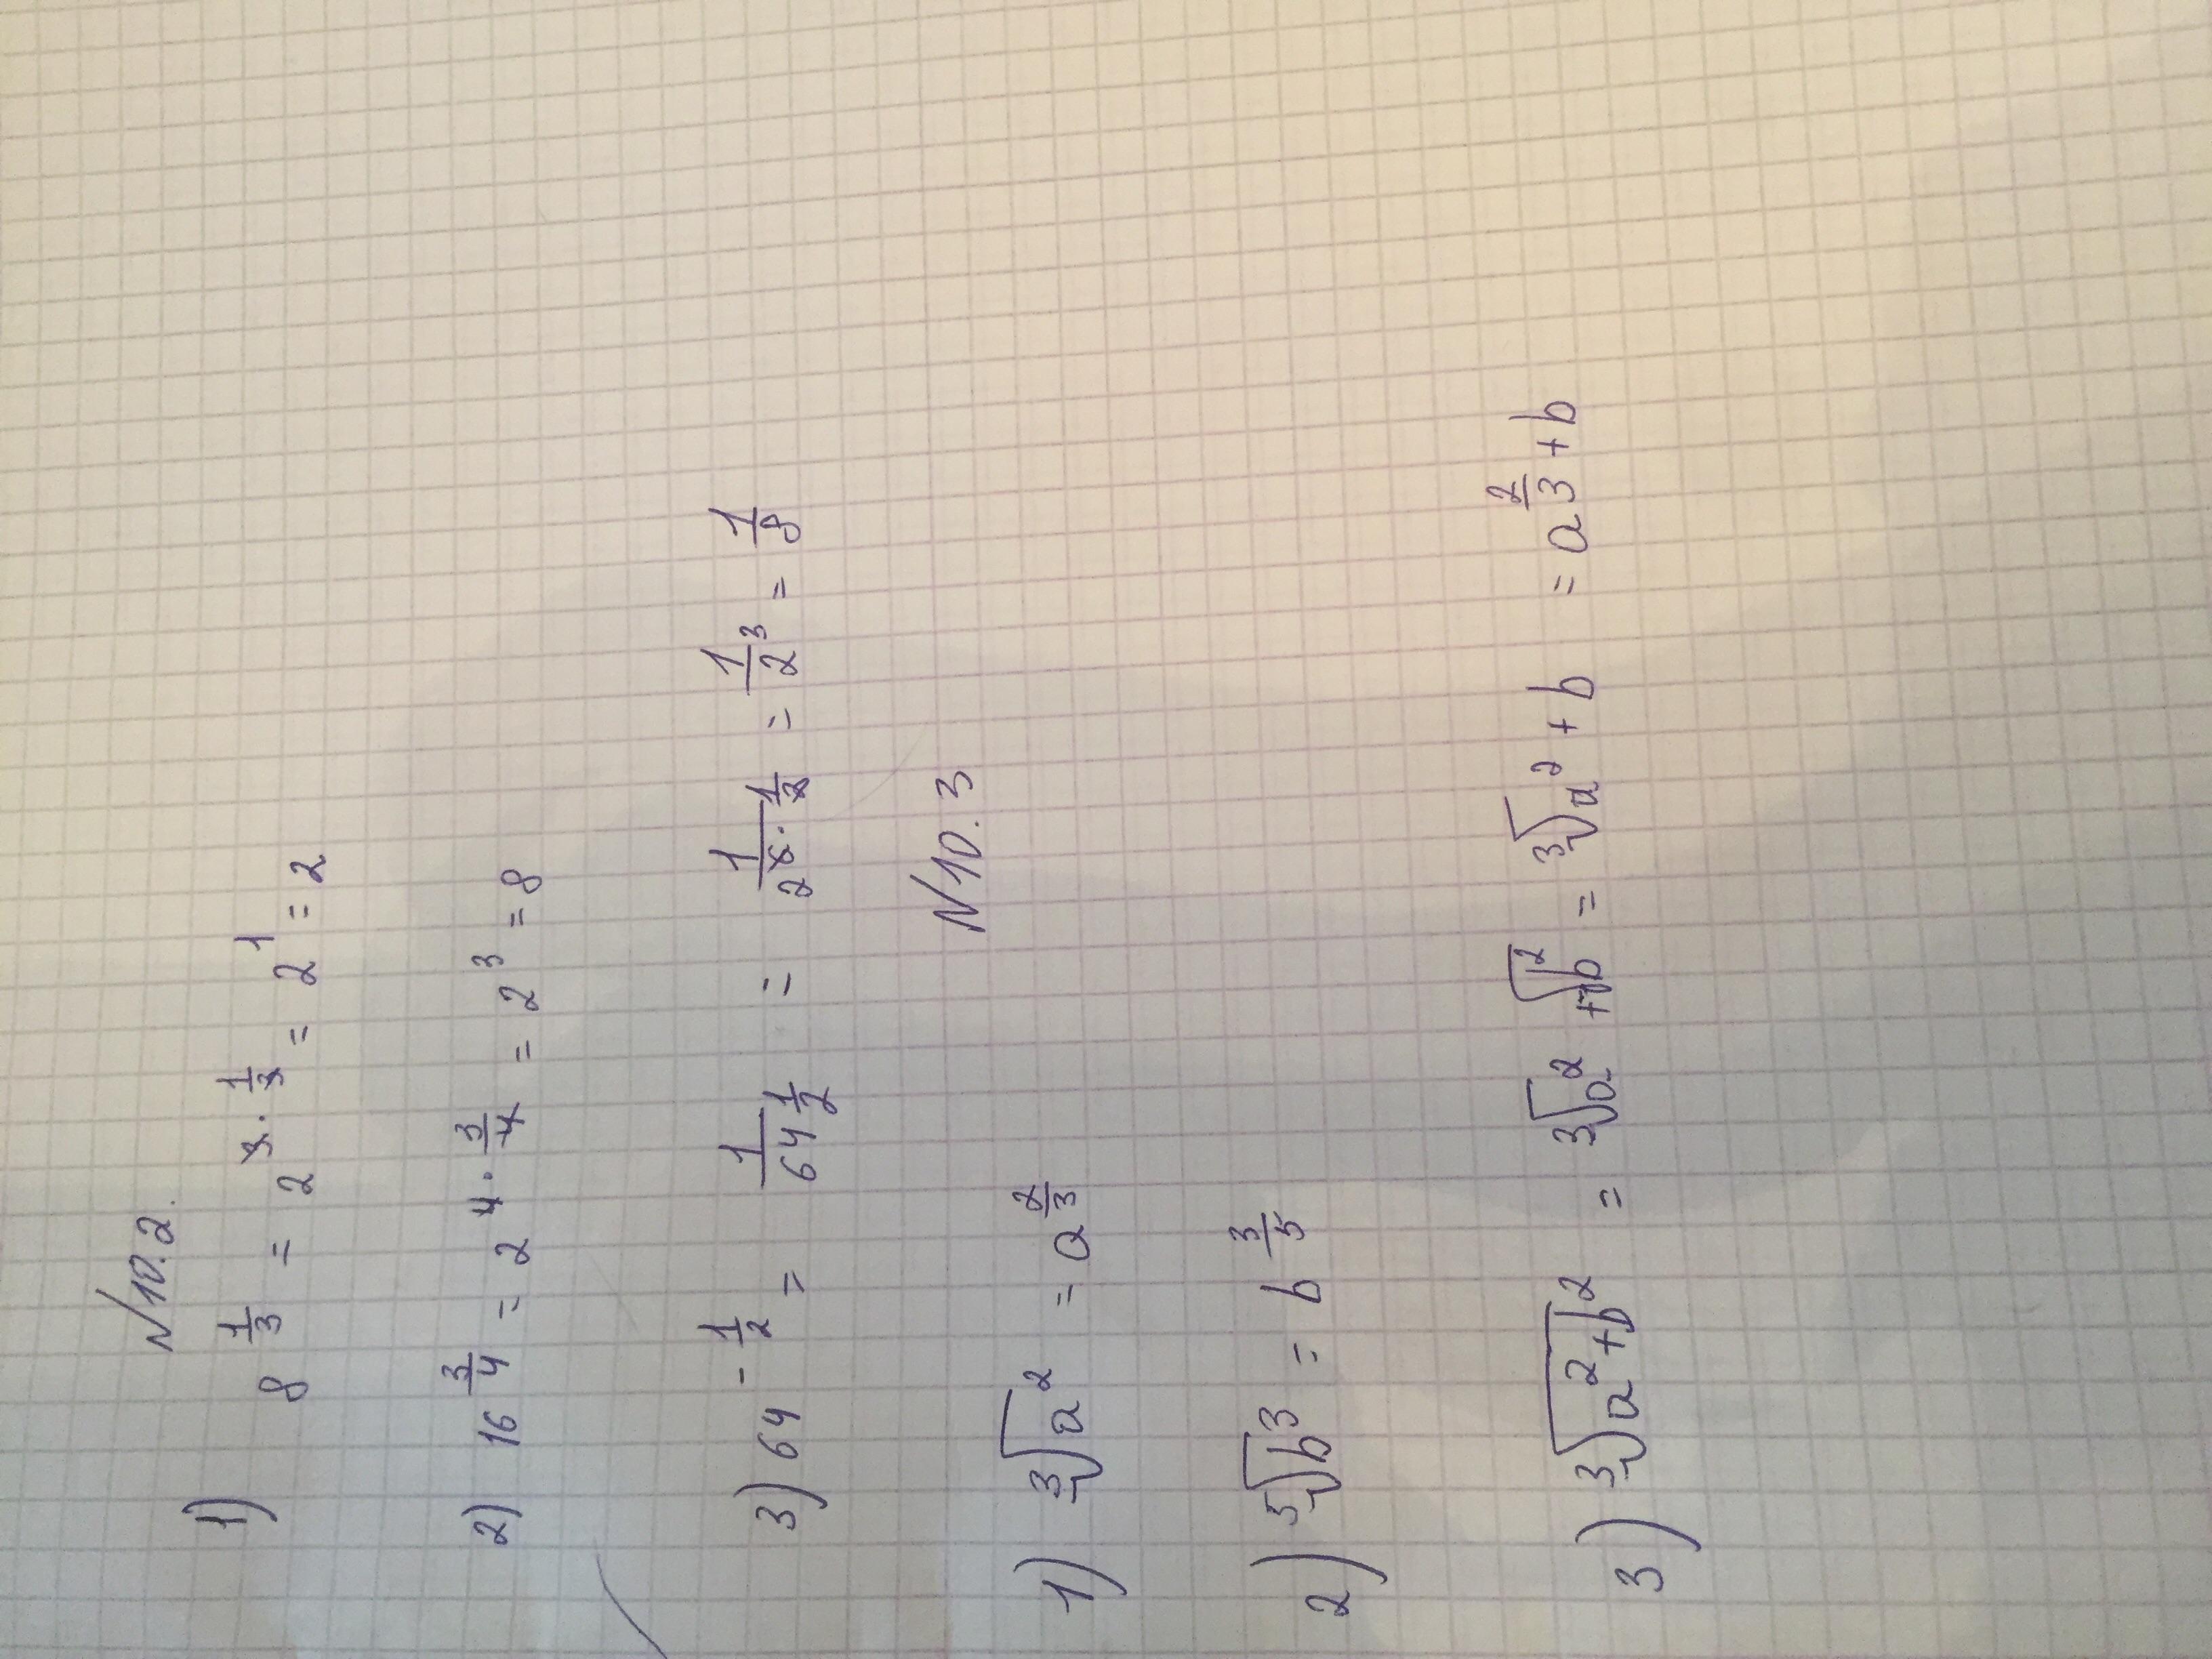 N10.2.
1) 8^{\frac{1}{3}} = 2^{3 \cdot \frac{1}{3}} = 2^1 = 2
2) 16^{\frac{3}{4}} = 2^{4 \cdot \frac{3}{4}} = 2^3 = 8
3) 64^{-\frac{1}{2}} = \frac{1}{64^{\frac{1}{2}}} = \frac{1}{2^{6 \cdot \frac{1}{2}}} = \frac{1}{2^3} = \frac{1}{8}
N10.3
1) \sqrt[3]{a^2} = a^{\frac{2}{3}}
2) \sqrt[5]{b^3} = b^{\frac{3}{5}}
3) \sqrt[3]{a^2+b^2} = \sqrt[3]{a^2} + \sqrt{b^2} = \sqrt[3]{a^2} + b = a^{\frac{2}{3}} + b